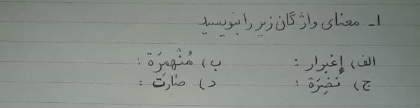 ۱ـ معنای واژگان زیر را بنویسید
الف) إغبرار : ب) مُنْهَمِرَة :
ج) نَضِرَة : د) صارَت :